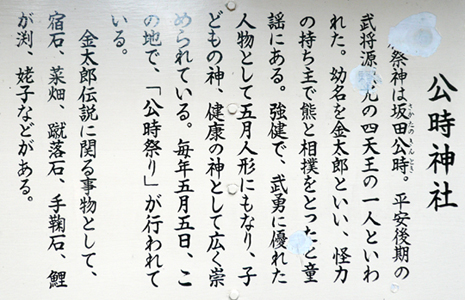 公時神社
祭神は坂田公時。平安後期の
さかたのきんとき
武将源光の四天王の一人といわ
れた。幼名を金太郎といい、怪力
の持ち主で熊と相撲をとったと童
謡にある。強健で、武勇に優れた
人物として五月人形にもなり、子
どもの神、健康の神として広く崇
められている。毎年五月五日、こ
の地で、「公時祭り」が行われて
いる。
金太郎伝説に関る事物として、
宿石、菜畑、蹴落石、手鞠石、鯉
が渕、姥子などがある。